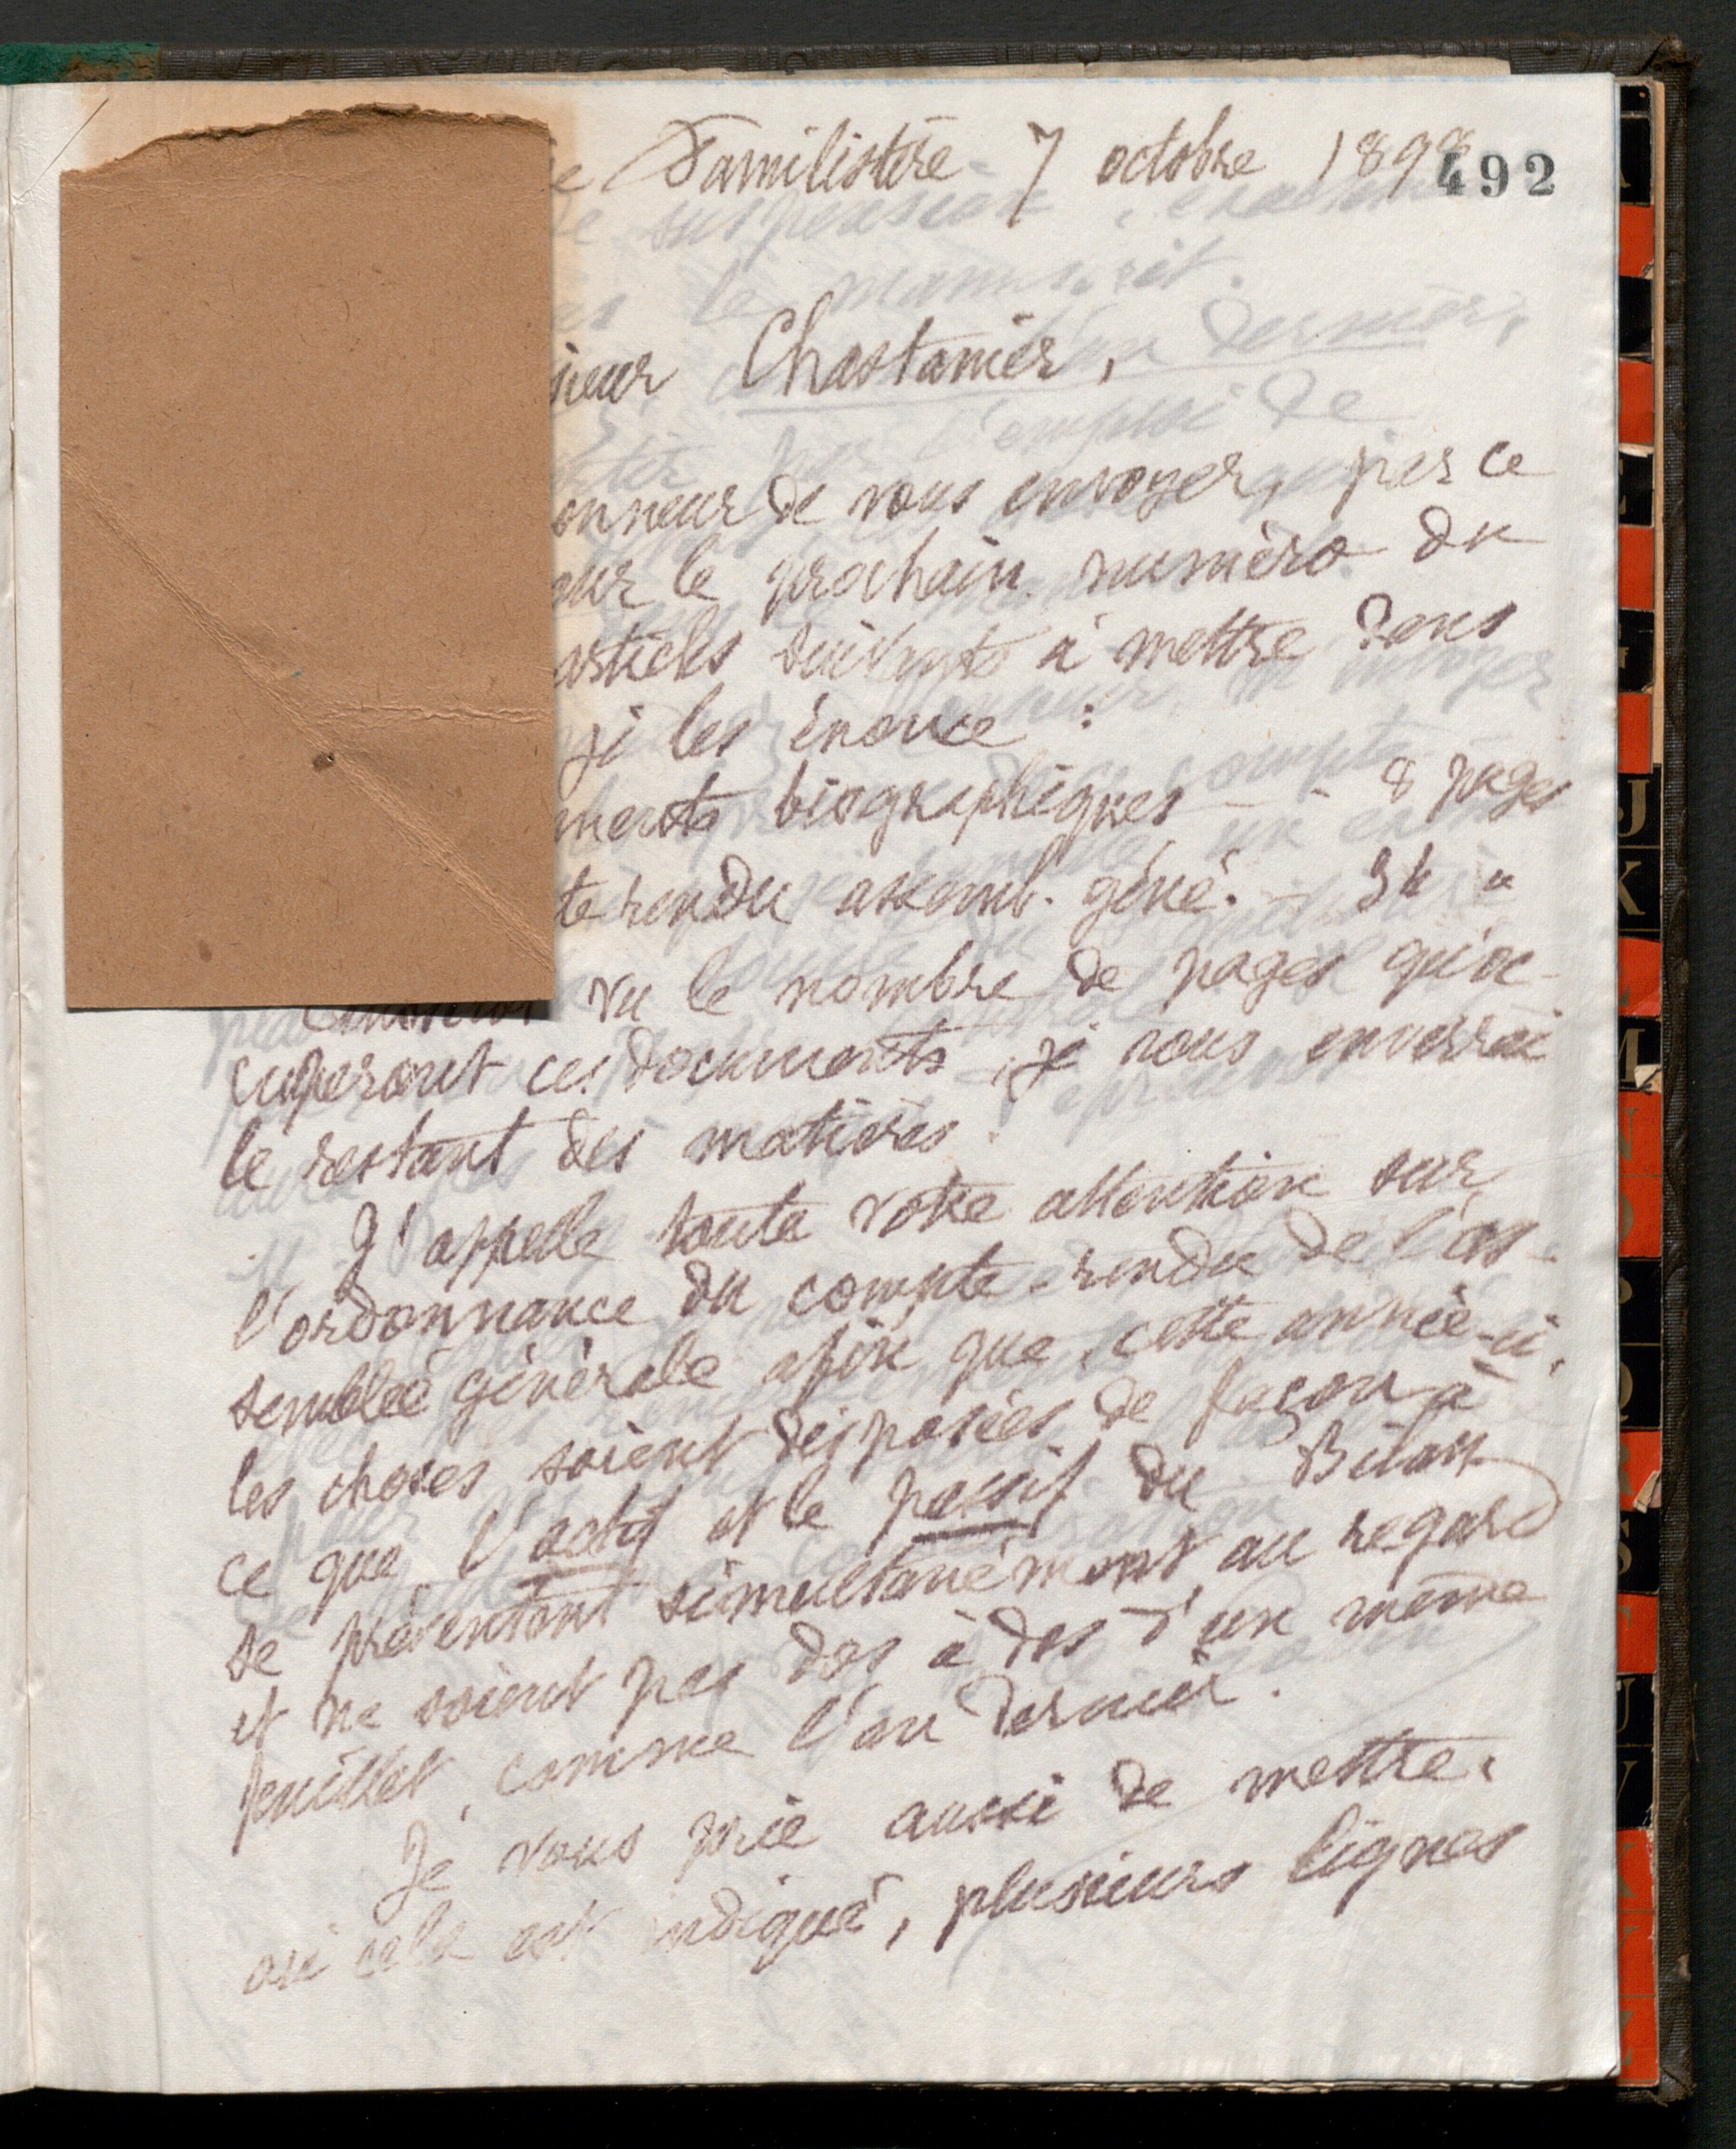 Familistère 7 octobre 1898
492
Chastanier,
de vous envoyer, par ce
le prochain numéro du
articles suivants à mettre dans
je les énonce :
biographiques - - 8 pages
rendu assemb. géné. - 34 "
vu le nombre de pages qu'oc-
cuperont ces documents, je vous enverrai
le restant des matières.
J'appelle toute votre attention sur
l'ordonnance du compte-rendu de l'as-
semblée générale afin que, cette année-ci,
les choses soient disposées de façon à
ce que l'actif et le passif du Bilan
se présentent simultanément au regard
et ne soient pas dos à dos d'un même
feuillet, comme l'an dernier.
Je vous prie aussi de mettre,
où cela est indiqué, plusieurs lignes